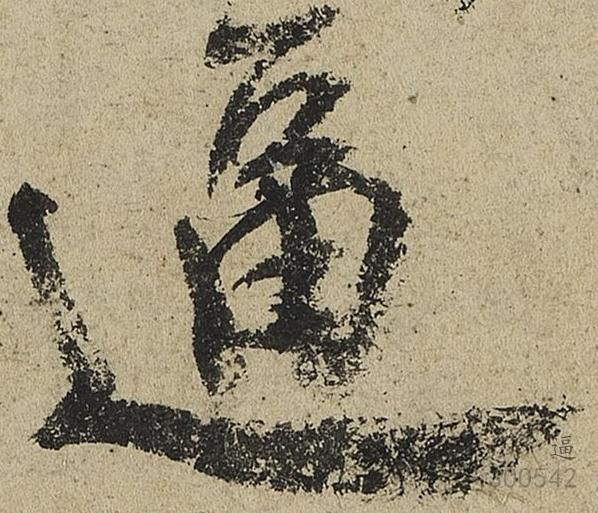 逼
逼
300542